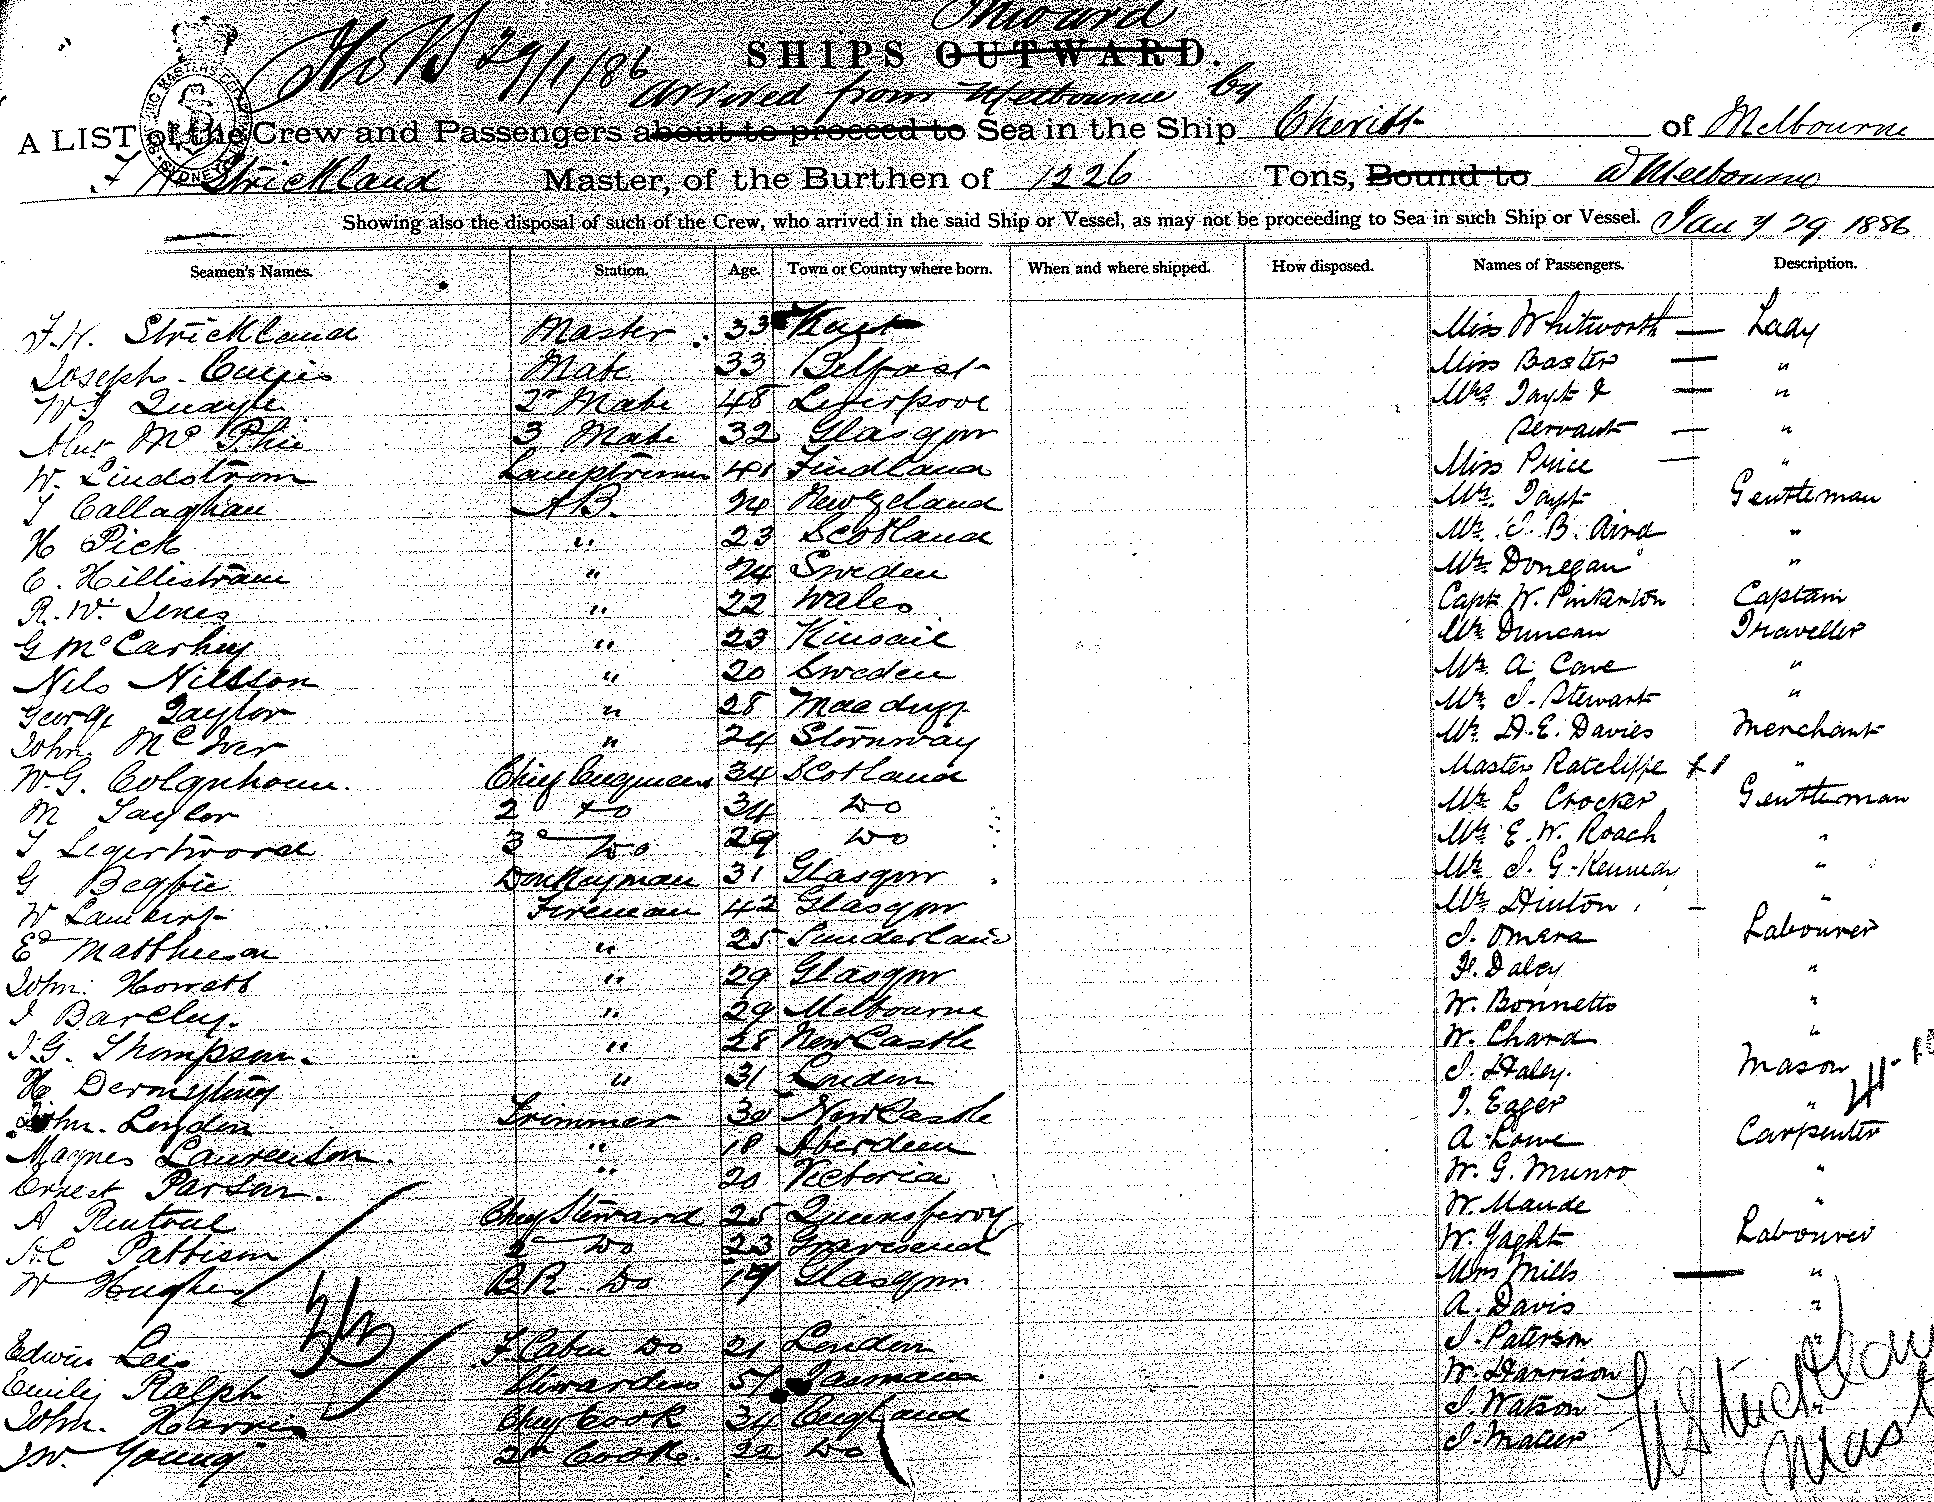 Inward
29/1/86 SHIPS OUTWARD.
Arrived from Melbourne by
A LIST of the Crew and Passengers about to proceed to Sea in the Ship Cheviot of Melbourne
F H Strickland Master, of the Burthen of 1226 Tons, Bound to Melbourne
Showing also the disposal of such of the Crew, who arrived in the said Ship or Vessel, as may not be proceeding to Sea in such Ship or Vessel. Jany 29 1886
Seamen's Names. Station. Age. Town or Country where born. When and where shipped. How disposed. Names of Passengers. Description.
F.H. Strickland Master 33 Kent Miss Whitworth — Lady
Joseph Mate 33 Belfast Miss Baxter — "
W Quayle 2r Mate 48 Liverpool Mrs Tayt & — "
Mc Phie 3 Mate 32 Glasgow Servant — "
W. Lindstrom Lamptrimmer 41 Findland Miss Price — "
T Callaghan AB. 24 New Zeland Mr. Tayt Gentleman
H Pick " 23 Scotland Mr. J. B. Aird "
C. Hillistram " 24 Sweden Mr. Donegan "
R. W. Jones " 22 Wales Capt W. Pinkerton Captain
G McCarhey " 23 Kinsail Mr Duncan Traveller
Nils Nilsson " 20 Sweden Mr. A. Cave "
George Taylor " 28 Macduff Mr. J. Stewart "
John. McIver " 24 Stornway Mr. D. E. Davies Merchant
W.G. Colquhoun. Chief Engineer 34 Scotland Master Ratcliffe "
M Taylor 2 Do 34 Do Mr. L Crocker Gentleman
T 3 Do 29 Do Mr. E. W. Roach "
G Begbie Donkeyman 31 Glasgow Mr. J. G. Kennedy "
W Lambert Fireman 42 Glasgow Mr Hinton "
Ed Matthewson " 25 Sunderland J. Omera Labourer
John. Howatt " 29 Glasgow H. Daley "
J Barcley. " 29 Melbourne W. Bonnetts "
J.G. Thompson. " 28 New Castle W. Chard "
H " 31 London J. Haley. Mason
John. Trimmer 30 New Castle T. Eager "
Magnes Laurenson. " 18 Aberdeen A. Lowe Carpenter
Ernest Parson. " 20 Victoria W. G. Munro "
A Rentoul Chief Steward 25 Queensferry W. Maude "
H.C Pattison 2 Do 23 Gravesend W. Yaght Labourer
W Hughes B.R. Do 19 Glasgow Mrs Mills — "
A. Davis "
Edwin Lees F. Cabin Do 21 London J. Paterson "
Emily Ralph Stewardess 51 Jamaica W. Harrison
John. Harris Chief Cook 34 England J. Watson
Young 2r Cook. 22 Do
Strickland
Master